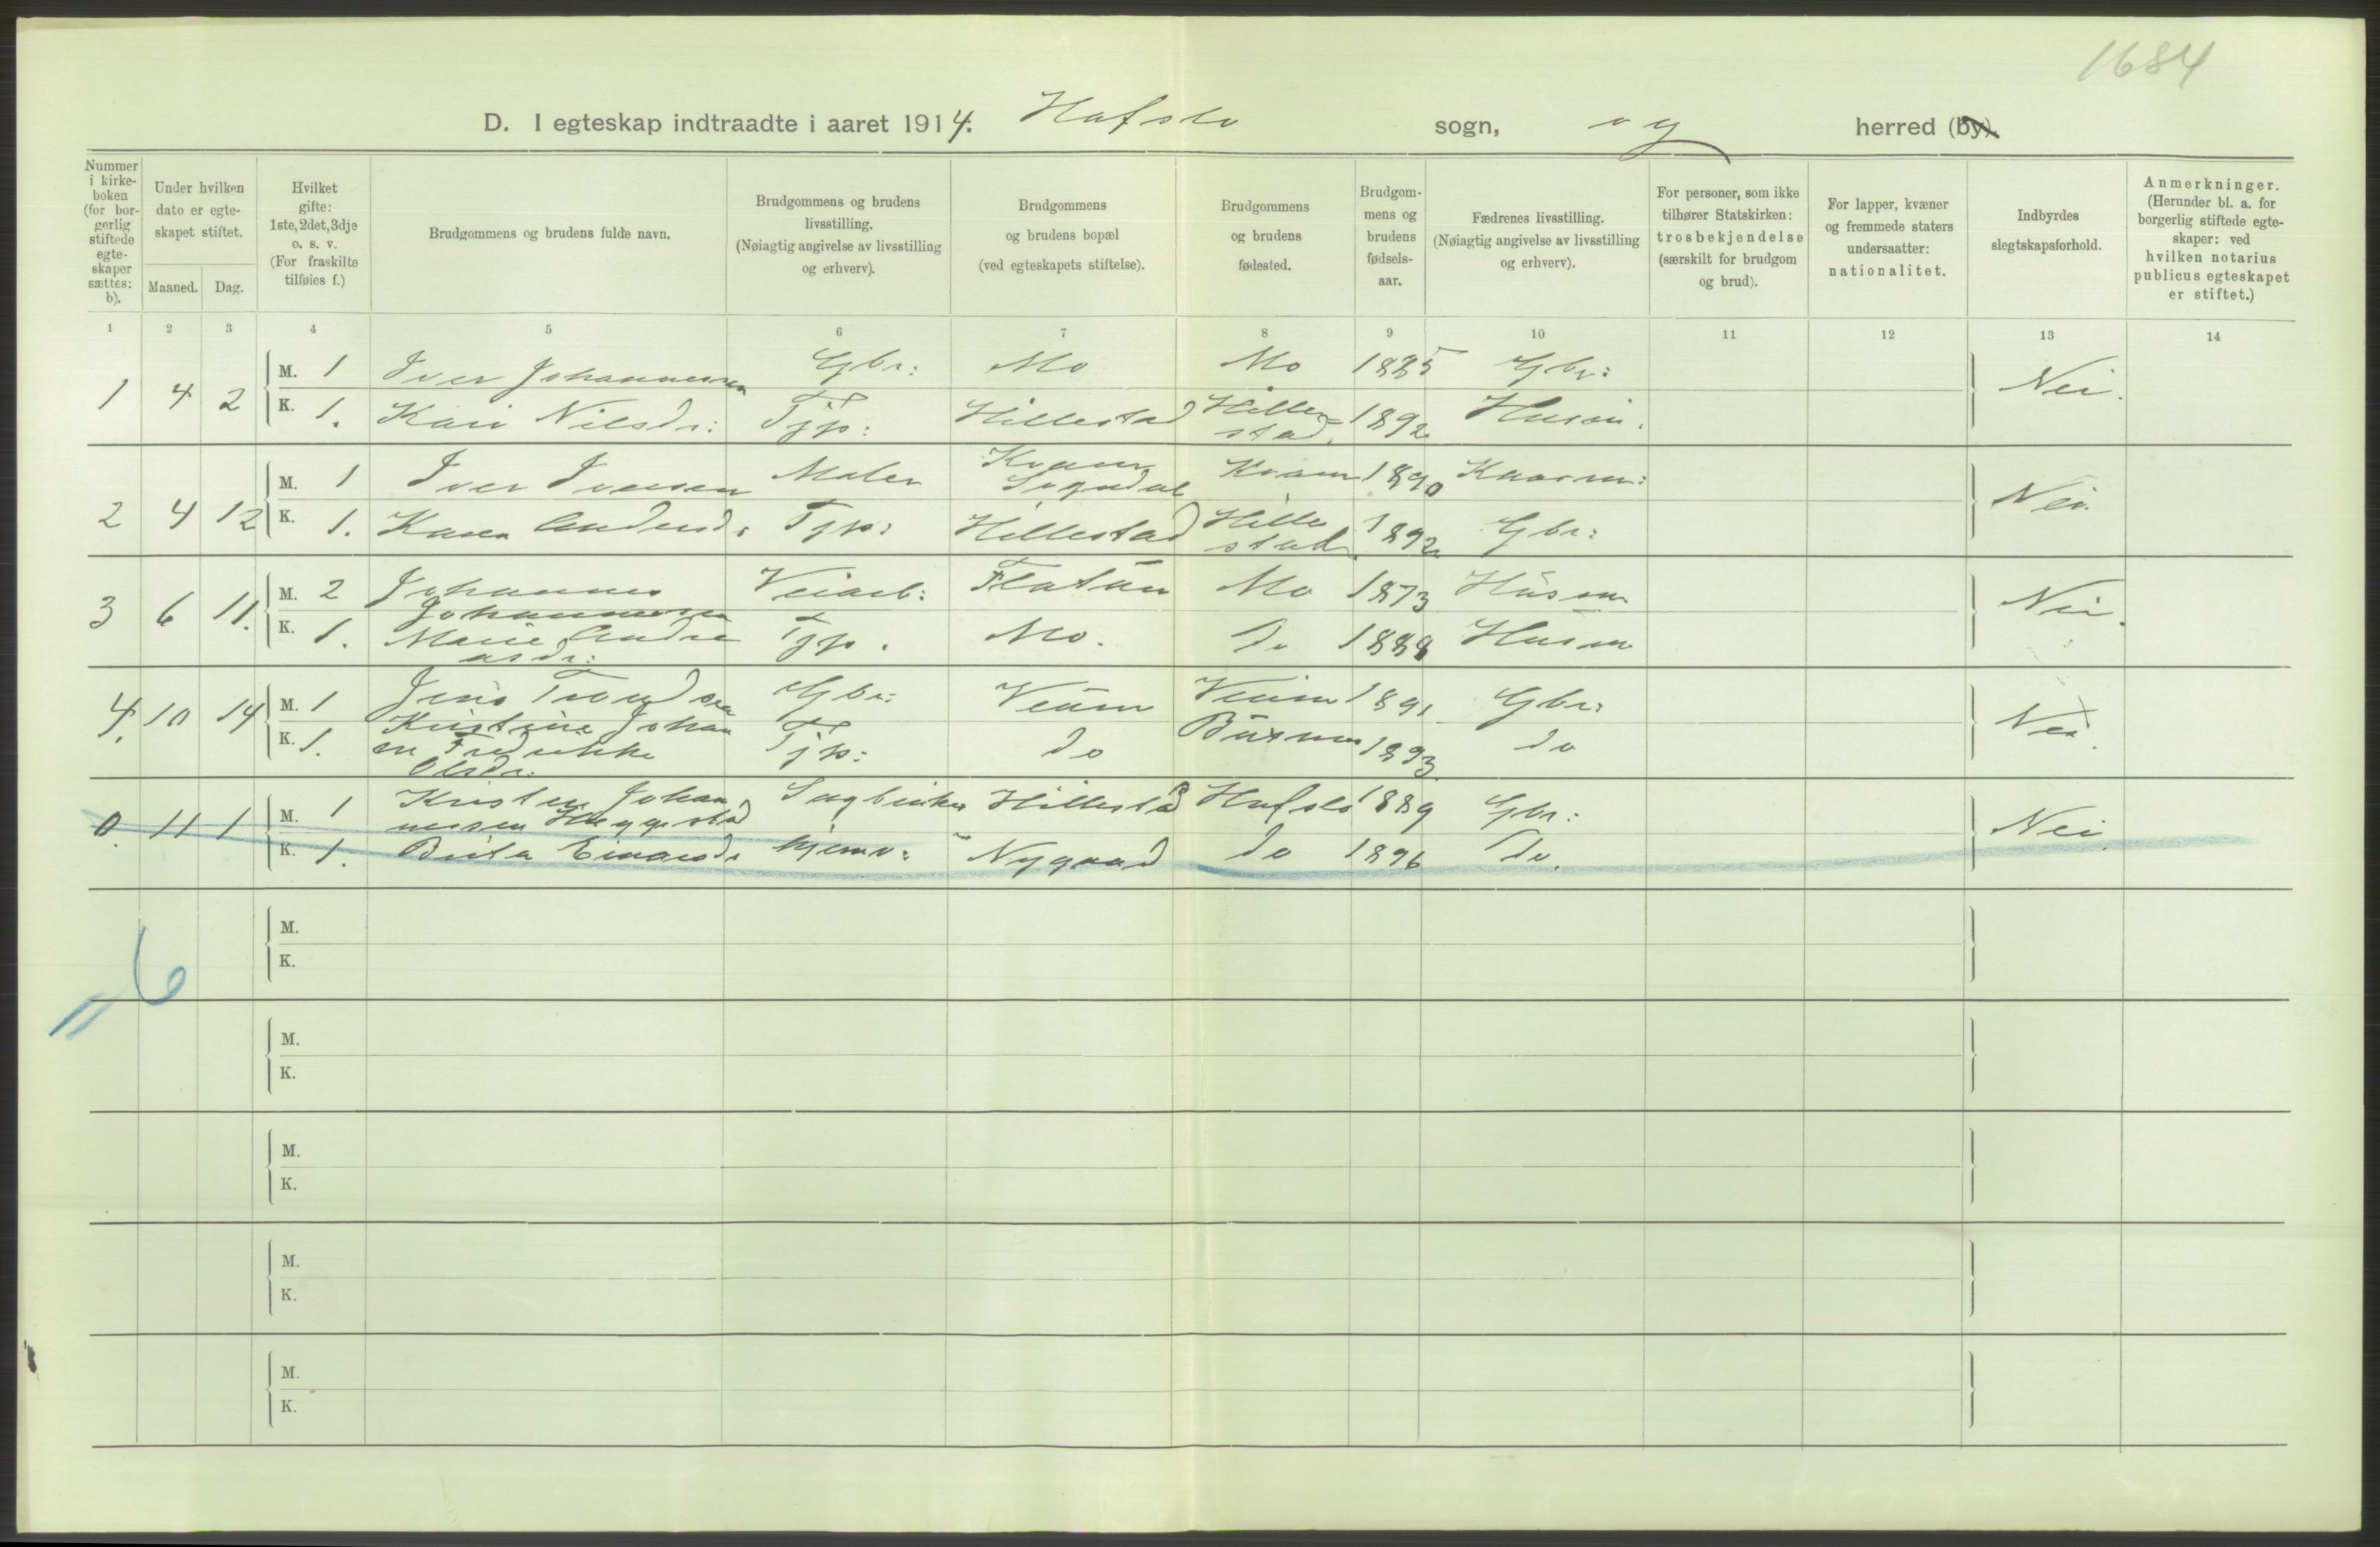 1684
D. I egteskap indtraadte i aaret 1914. Hafslo sogn, og herred (by).
Nummer i kirke-boken (for bor-gerlig stiftede egte-skaper sættes: b).
Under hvilken dato er egte-skapet stiftet.
Maaned. Dag.
Hvilket gifte: 1ste, 2det, 3dje o. s. v. (For fraskilte tilføies f.)
Brudgommens og brudens fulde navn.
Brudgommens og brudens livsstilling. (Nøiagtig angivelse av livsstilling og erhverv).
Brudgommens og brudens bopæl (ved egteskapets stiftelse).
Brudgommens og brudens fødested.
Brudgom-mens og brudens fødsels-aar.
Fædrenes livsstilling. (Nøiagtig angivelse av livsstilling og erhverv).
For personer, som ikke tilhører Statskirken: trosbekjendelse (særskilt for brudgom og brud).
For lapper, kvæner og fremmede staters undersaatter: nationalitet.
Indbyrdes slegtskapsforhold.
Anmerkninger. (Herunder bl. a. for borgerlig stiftede egte-skaper: ved hvilken notarius publicus egteskapet er stiftet.)
1 2 3 4 5 6 7 8 9 10 11 12 13 14
1 4 2 M. 1 Iver Johannessen Gbr: Mo Mo 1885 Gbr: Nei.
K. 1. Kari Nilsdr: Tjp: Hillestad Hille-stad. 1892 Husm.
2 4 12 M. 1 Iver Iversen Maler Kvam Sogndal Kvam 1890 Kaarm: Nei.
K. 1. Karen Andersdr Tjp: Hillestad Hillestad 1892 Gbr:
3 6 11. M. 2 Johannes Johannessen Veiarb: Flatün Mo 1873 Hüsm Nei.
K. 1. Marie Andreasdr: Tjp. Mo. do 1888 Husm
4. 10 14 M. 1 Jens Trondsen Gbr: Veüm Veüm 1891 Gbr: Nei.
K. 1. Kristine Johanne Fredrikke Olsdr: Tjp: do 1893 do
0. 11 1 M. 1 Kristen Johannessen Heggestad Sagbruker Hillestad Hafslo 1889 Gbr: Nei
K. 1. Brita Einarsdr hjemv: Nygaard do 1896 Do.
M.
K.
6
M.
K.
M.
K.
M.
K.
M.
K.